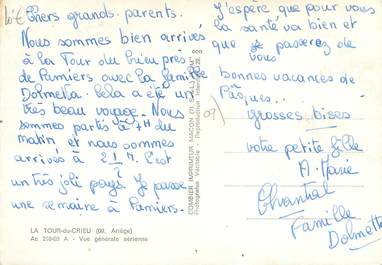 Chers grands-parents.
Nous sommes bien arrivés
à la Tour du Crieu près
de Pamiers avec la famille
Dolmetta. Cela a été un
très beau voyage. Nous
sommes partis à 7H du
matin et nous sommes
arrivés à 2 1/2 H. C'est
un très joli pays. Je passe
une semaine à Pamiers.
LA TOUR-du-CRIEU (09, Ariège)
Ac 219-03 A - Vue générale aérienne
COMBIER IMPRIMEUR MACON
J'espère que pour vous
la santé va bien et
que je passerez de
vous
bonnes vacances de
Pâques...
09
grosses bises
votre petite fille
A. Marie
Chantal
Famille
Dolmetta